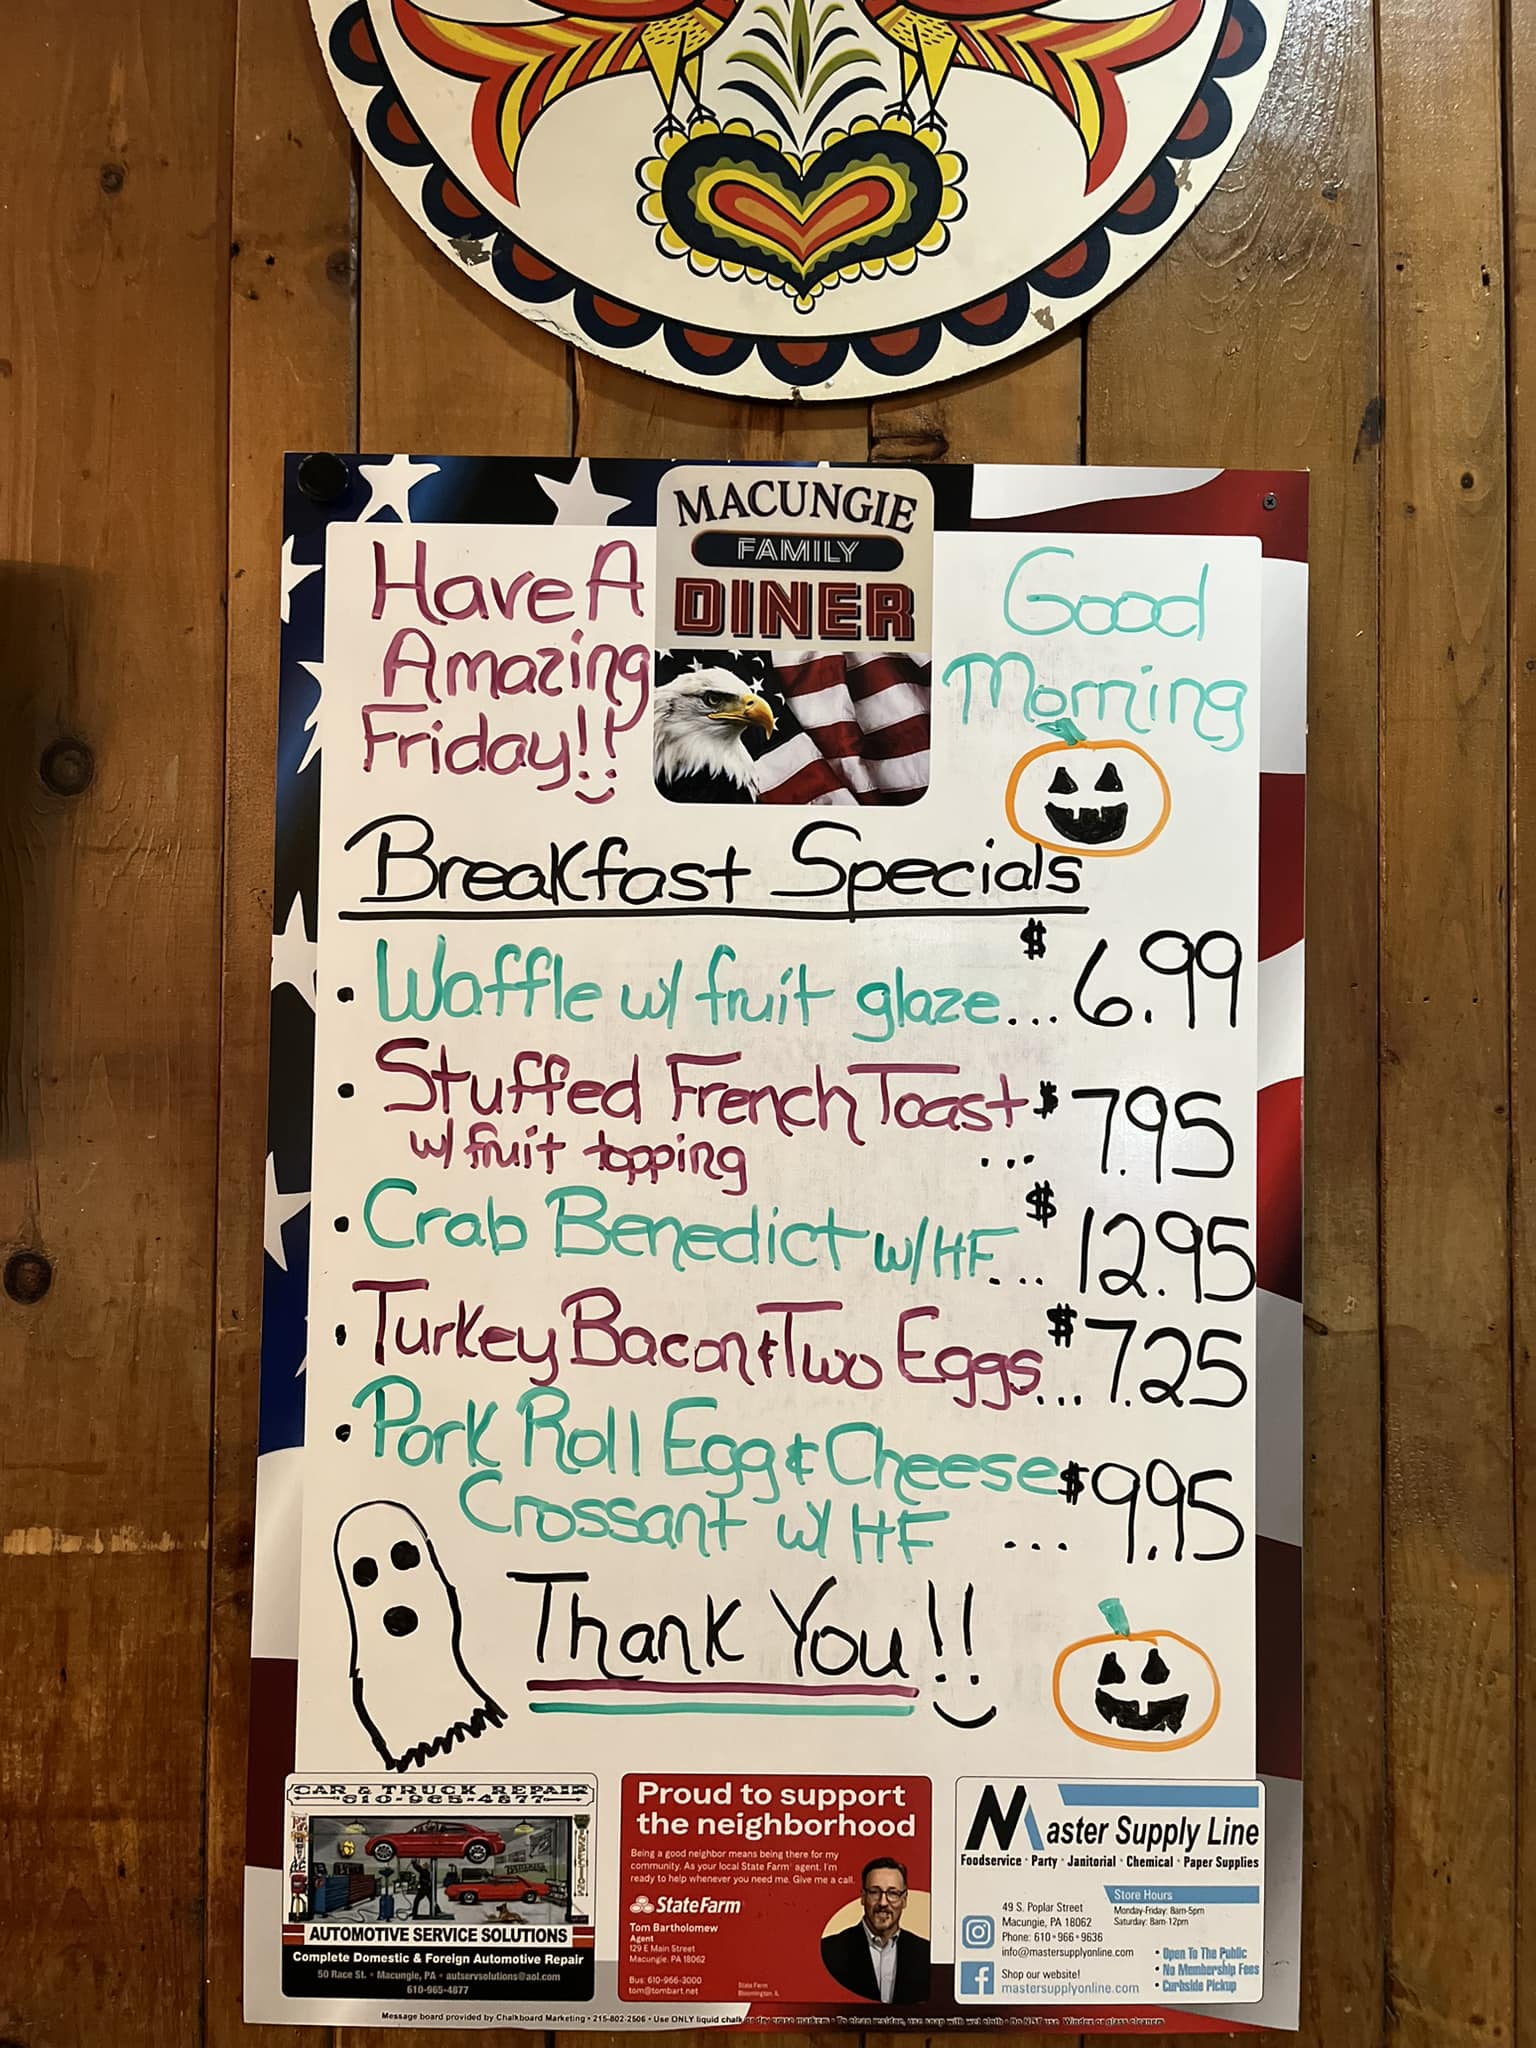 MACUNGIE
FAMILY
DINER
Have A
Amazing
Friday!!
Good
Morning
Breakfast Specials
• Waffle w/ fruit glaze... $6.99
• Stuffed French Toast
w/ fruit topping ... $7.95
• Crab Benedict w/ HF... $12.95
• Turkey Bacon & Two Eggs... $7.25
• Pork Roll Egg & Cheese
Crossant w/ HF ... $9.95
Thank You!!
CAR & TRUCK REPAIR
610-965-4877
AUTOMOTIVE SERVICE SOLUTIONS
Complete Domestic & Foreign Automotive Repair
50 Race St. • Macungie, PA • autservsolutions@aol.com
610-965-4877
Proud to support
the neighborhood
Being a good neighbor means being there for my
community. As your local State Farm® agent, I'm
ready to help whenever you need me. Give me a call.
StateFarm
Tom Bartholomew
Agent
129 E Main Street
Macungie, PA 18062
Bus: 610-966-3000
tom@tombart.net
State Farm
Bloomington, IL
Master Supply Line
Foodservice · Party · Janitorial · Chemical · Paper Supplies
Store Hours
Monday-Friday: 8am-5pm
Saturday: 8am-12pm
49 S. Poplar Street
Macungie, PA 18062
Phone: 610•966•9636
info@mastersupplyonline.com
Shop our website!
mastersupplyonline.com
• Open To The Public
• No Membership Fees
• Curbside Pickup
Message board provided by Chalkboard Marketing • 215-802-2506 • Use ONLY liquid chalk or dry erase markers • To clean residue, use soap with wet cloth • Do NOT use Windex or glass cleaners